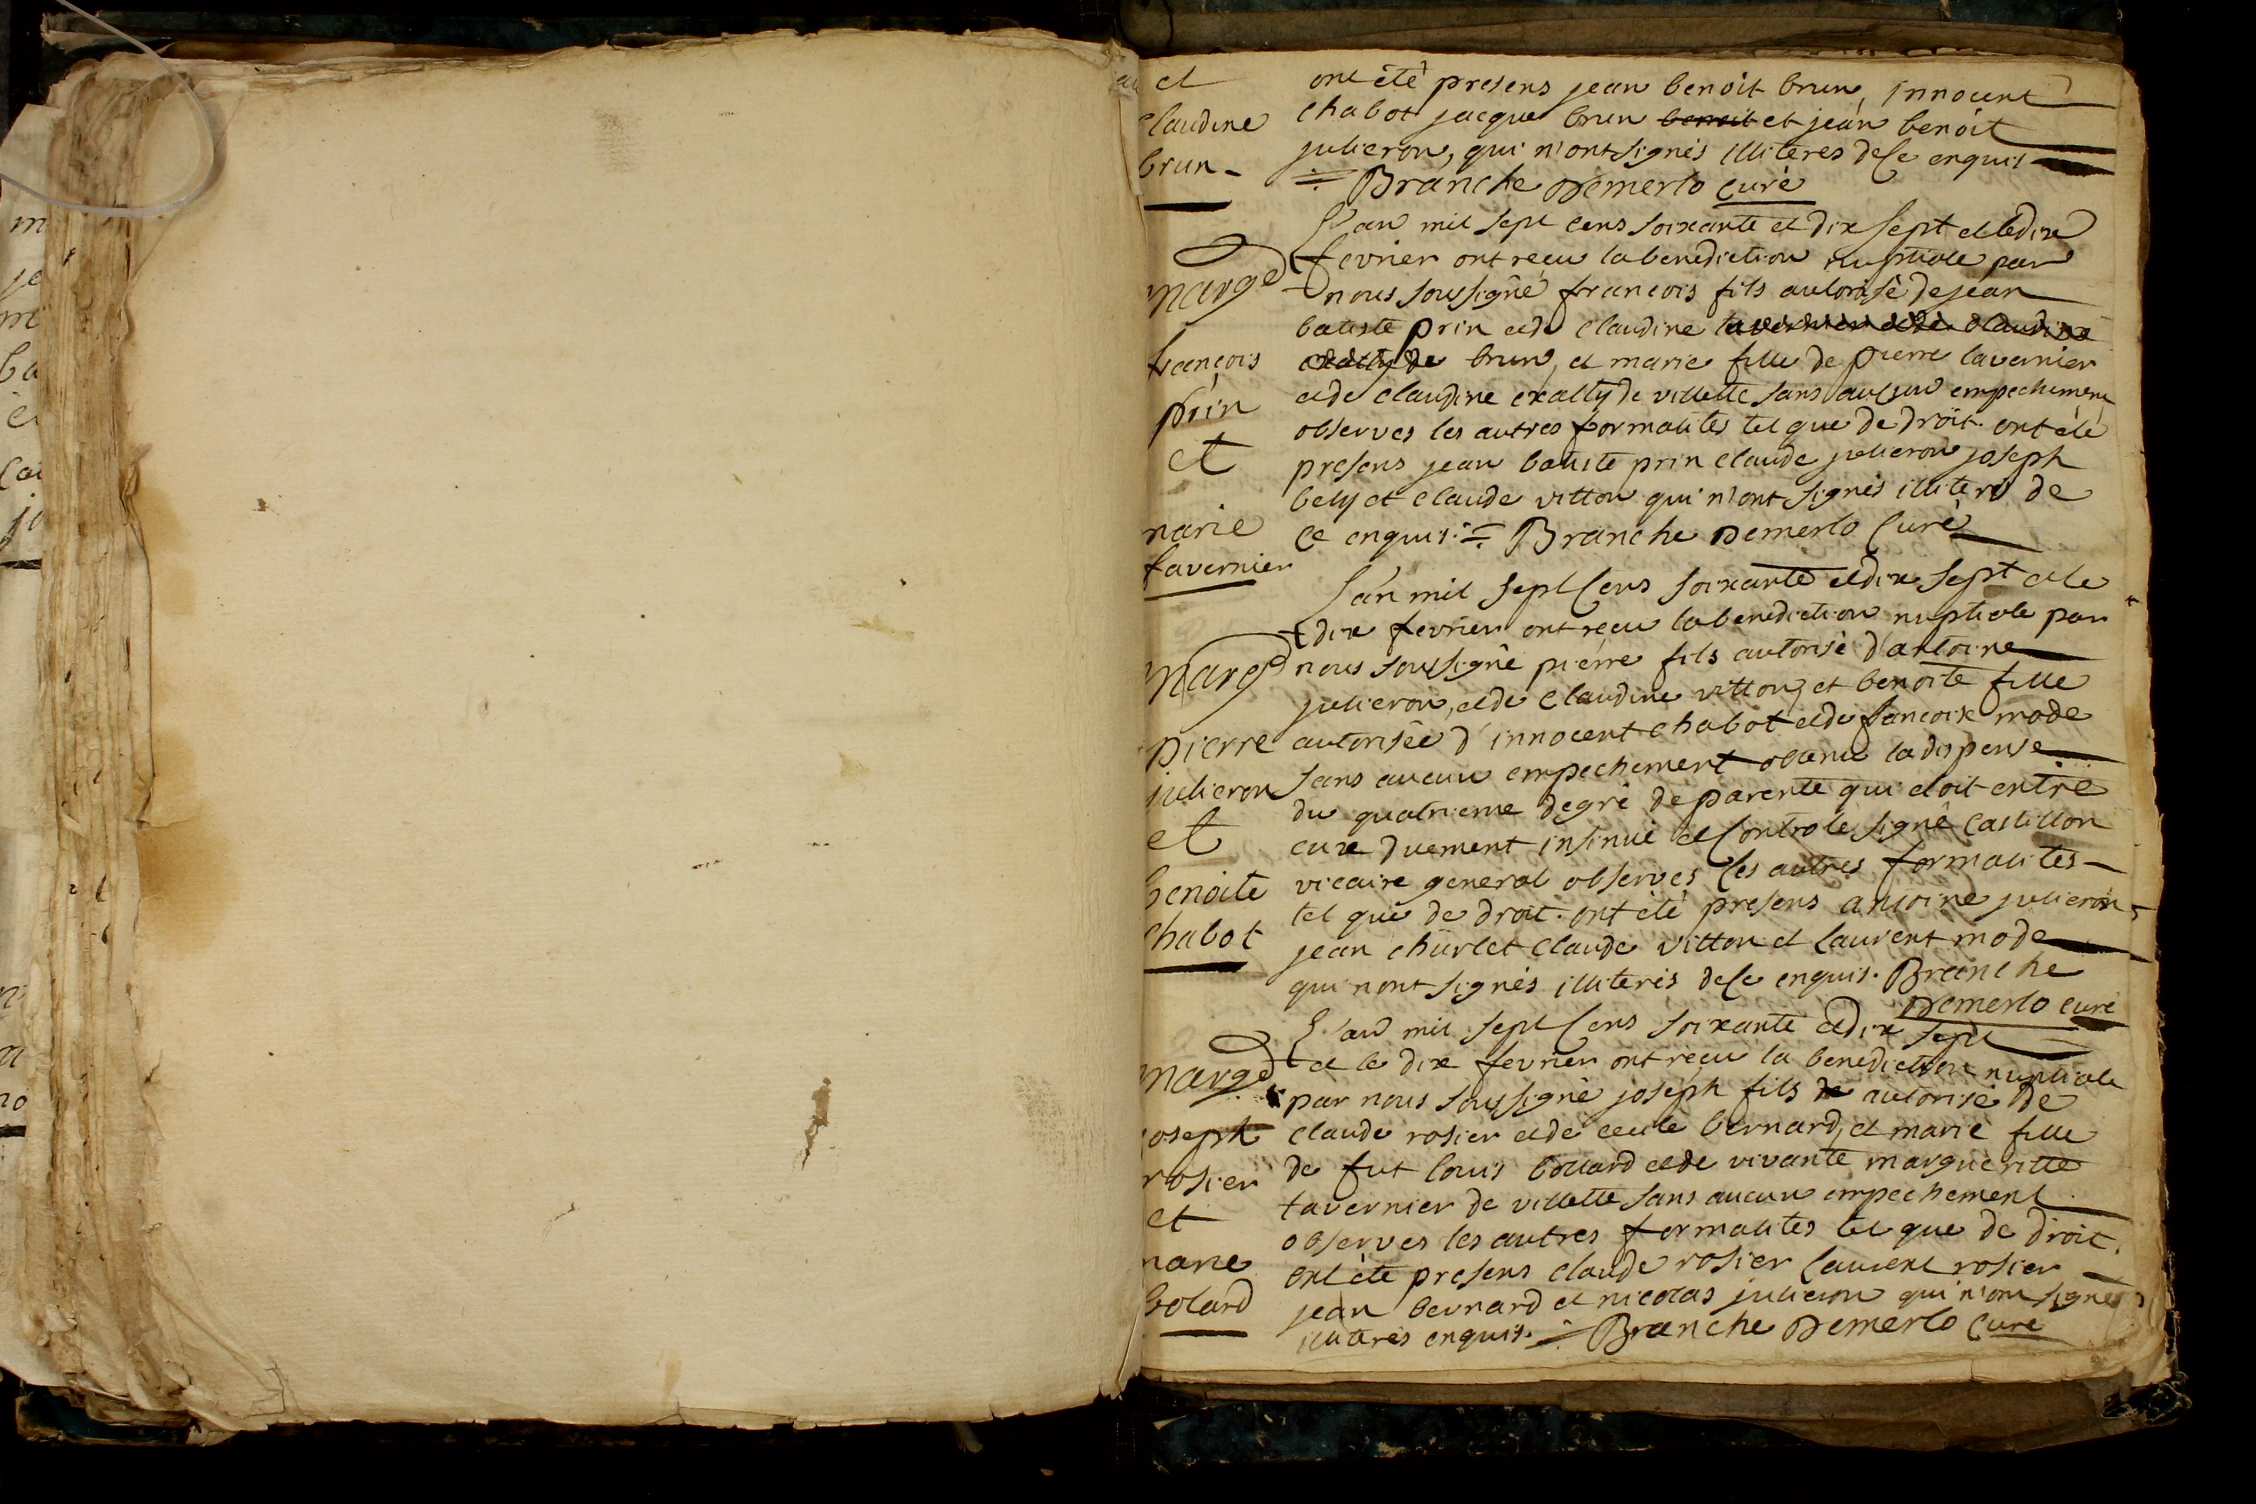 et
Claudine
brun -
ont été presens jean benoit brun, innocent
chabot jacque brun benoit et jean benoit
julieron, qui n'ont signés illiteres de ce enquis
Branche Demerlo curé
marge
françois
prin
et
marie
tavernier
L'an mil sept cens soixante et dix sept et le dix
fevrier ont reçu la benediction nuptiale par
nous soussigné francois fils autorisé de jean
batiste prin et de Claudine tavernier et de claudine
exally de brun, et marie fille de pierre tavernier
et de claudine exally de villette sans aucun empechement
observes les autres formalites tel que de droit. ont été
presens jean batiste prin claude julieron joseph
bely et claude vitton qui n'ont signés illiterés de
ce enquis. Branche Demerlo Curé
marge
pierre
julieron
et
benoite
chabot
L'an mil sept Cens soixante et dix sept et le
dix fevrier ont reçu la benediction nuptiale par
nous soussigné pierre fils autorisé d'antoine
julieron, et de Claudine vitton, et benoite fille
autorisée d'innocent chabot et de fancoix mode
sans aucun empechement obtenu la dispense
du quatrieme degré de parenté qui etoit entre
eux duement insinué et Controle signé Castillon
vicaire general observes les autres formalites
tel que de droit. ont été presens antoine julieron
jean churlet Claude vitton et laurent mode
qui n'ont signés illiterés de ce enquis. Branche
Demerlo curé
marge
joseph
rosier
et
marie
bolard
L'an mil sept Cens soixante et dix sept
et le dix fevrier ont reçu la benediction nuptiale
par nous soussigné joseph fils de autorisé de
claude rosier et de cecile bernard, et marie fille
de fut louis bollard et de vivante margueritte
tavernier de villette sans aucun empechement
observes les autres formalites tel que de droit.
ont été presens claude rosier laurent rosier
jean bernard et nicolas julieron qui n'ont signés
illiterés enquis. Branche Demerlo Curé